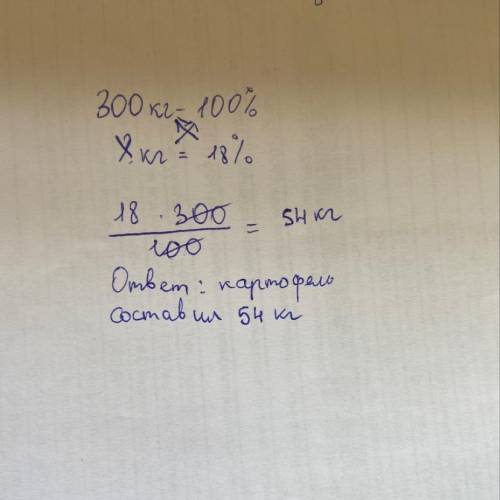 300 кг - 100%
X кг = 18%
18 · 300 / 100 = 54 кг
Ответ: картофель
составил 54 кг